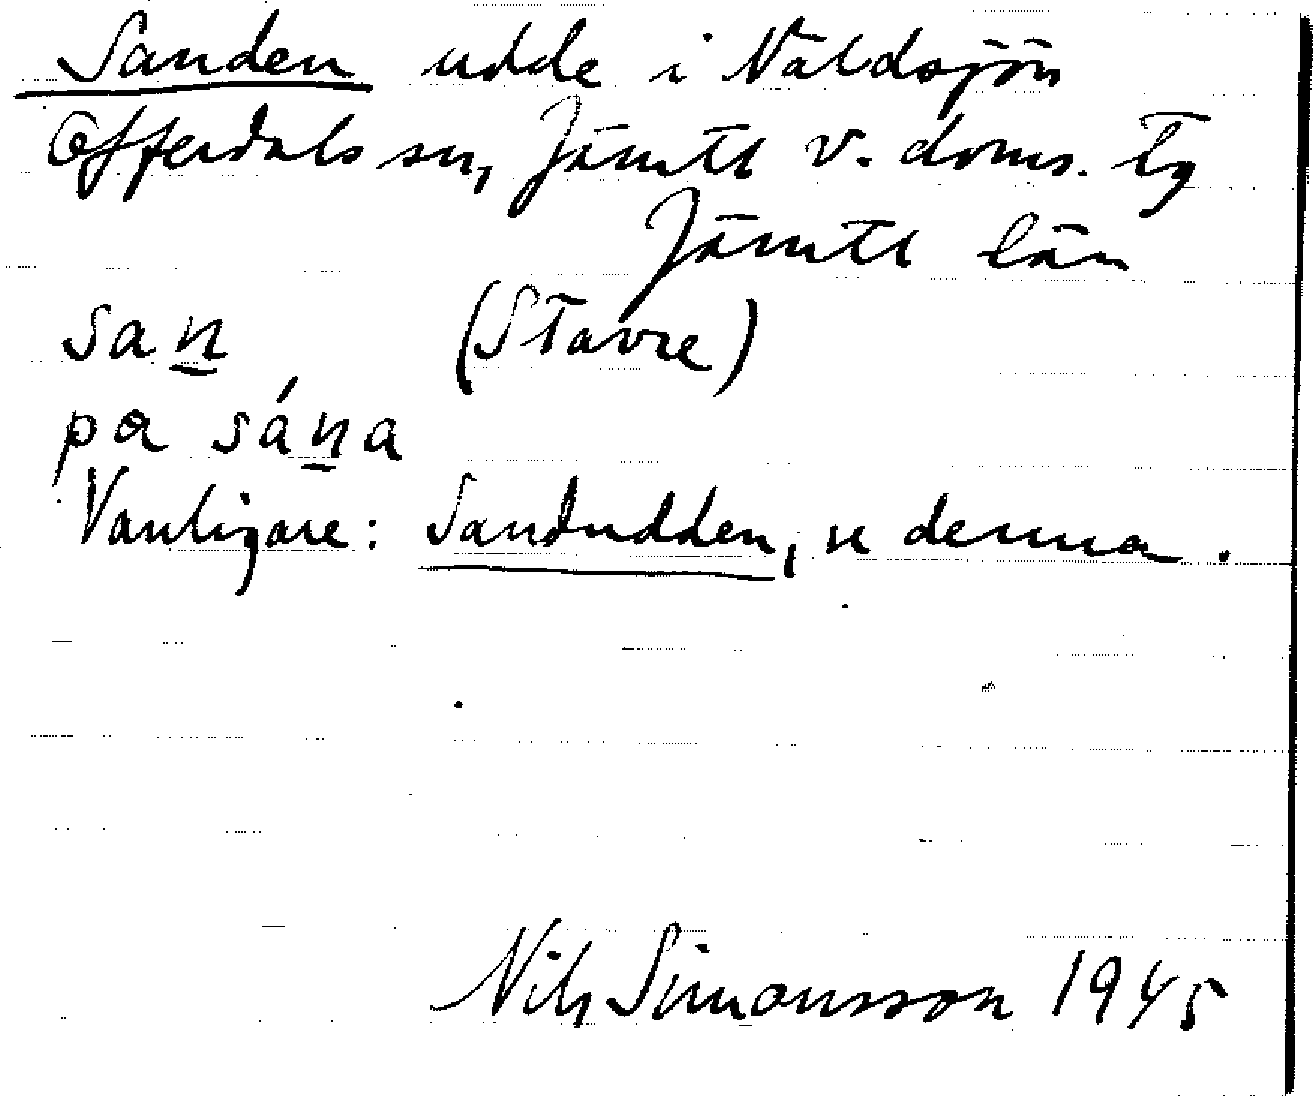 Sanden udde i Näldsjön
Offerdals sn, Jämtl v. doms. tg
Jämtl län
san̲ (Stavre)
pa sán̲a
Vanligare: Sandudden, se denna.
Nils Simonsson 1945